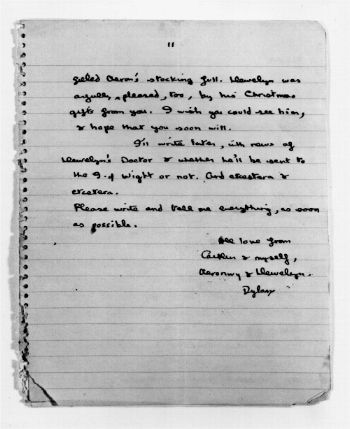 11
filled Aeron's stocking full. Llewelyn was
awfully pleased, too, by his Christmas
gifts from you. I wish you could see him,
& hope that you soon will.
I'll write later, with news of
Llewelyn's Doctor & whether he'll be sent to
the I. of Wight or not. And etcetera &
etcetera.
Please write and tell me everything, as soon
as possible.
All love from
Caitlin & myself,
Aeronwy & Llewelyn.
Dylan